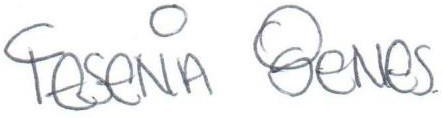 Yesenia Genes.